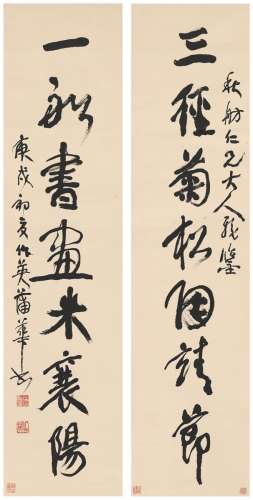 三徑菊松陶靖節
秋舫仁兄大人雅鑒
一船書畫米襄陽
庚戌初夏作英蒲華